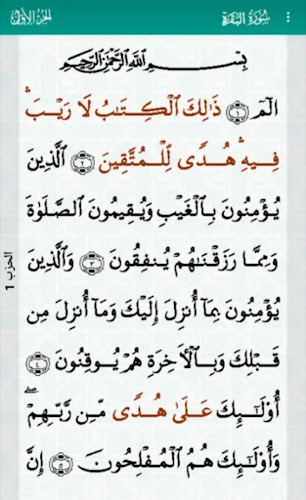 سُورَةُ البَقَرَةِ
الجُزْءُ الأَوَّلُ
بِسْمِ ٱللَّهِ ٱلرَّحْمَٰنِ ٱلرَّحِيمِ
الٓمٓ ۝١ ذَٰلِكَ ٱلْكِتَٰبُ لَا رَيْبَ ۛ
فِيهِ ۛ هُدًى لِّلْمُتَّقِينَ ۝٢ ٱلَّذِينَ
يُؤْمِنُونَ بِٱلْغَيْبِ وَيُقِيمُونَ ٱلصَّلَوٰةَ
وَمِمَّا رَزَقْنَٰهُمْ يُنفِقُونَ ۝٣ وَٱلَّذِينَ
يُؤْمِنُونَ بِمَآ أُنزِلَ إِلَيْكَ وَمَآ أُنزِلَ مِن
قَبْلِكَ وَبِٱلْءَاخِرَةِ هُمْ يُوقِنُونَ ۝٤
أُو۟لَٰٓئِكَ عَلَىٰ هُدًى مِّن رَّبِّهِمْ ۖ
وَأُو۟لَٰٓئِكَ هُمُ ٱلْمُفْلِحُونَ ۝٥ إِنَّ
الحزب 1